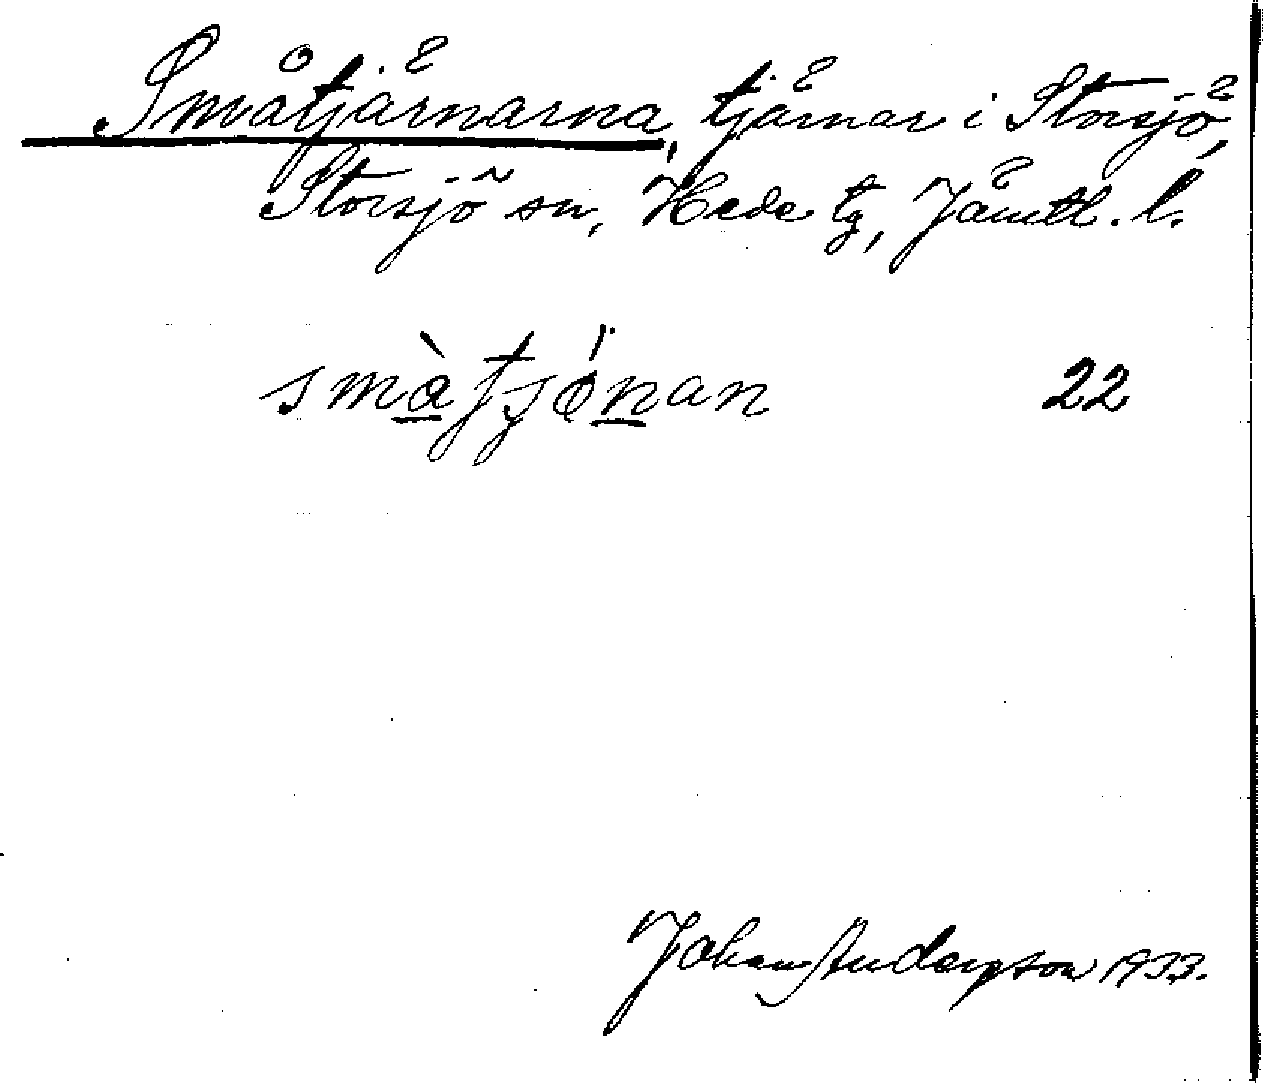 Småtjärnarna, tjärnar i Storsjö,
Storsjö sn, Hede tg, Jämtl. l.
smàtjónan 22
Johan Anderpson 1933.